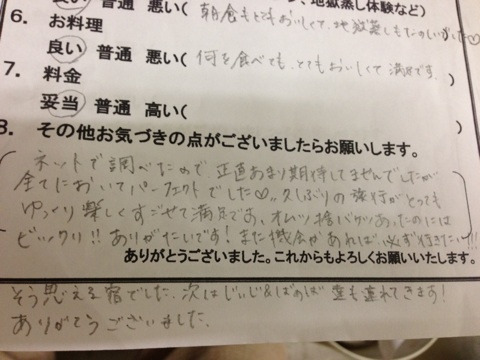 良い 普通 悪い( 朝食もとてもおいしくて、地獄蒸しもたのしかった♡
、地獄蒸し体験など)
6. お料理
良い 普通 悪い( 何を食べても、とてもおいしくて満足です。
7. 料金
妥当 普通 高い( )
8. その他お気づきの点がございましたらお願いします。
ネットで調べたので、正直あまり期待してませんでしたが
全てにおいてパーフェクトでした♡。久しぶりの旅行がとっても
ゆっくり楽しくすごせて満足です。オムツ捨バケツあったのには
ビックリ!! ありがたいです! また機会があれば、必ず行きたい!!!
ありがとうございました。これからもよろしくお願いいたします。
そう思える宿でした。次はじぃじ&ばぁば達も連れてきます!
ありがとうございました。